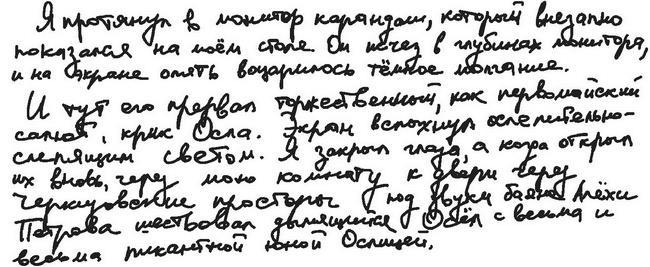 Я протянул в монитор карандаш, который внезапно
показался на моём столе. Он исчез в глубинах монитора,
и на экране опять воцарилось тёмное молчание.
И тут его прервал торжественный, как первомайский
салют, крик Осла. Экран вспыхнул ослепительно-
слепящим светом. Я закрыл глаза, а когда открыл
их вновь, через мою комнату к двери через
Черкизовские просторы под звуки баяна Алёхи
Петрова шествовал дымящийся Осёл с весьма и
весьма пикантной юной Ослицей.